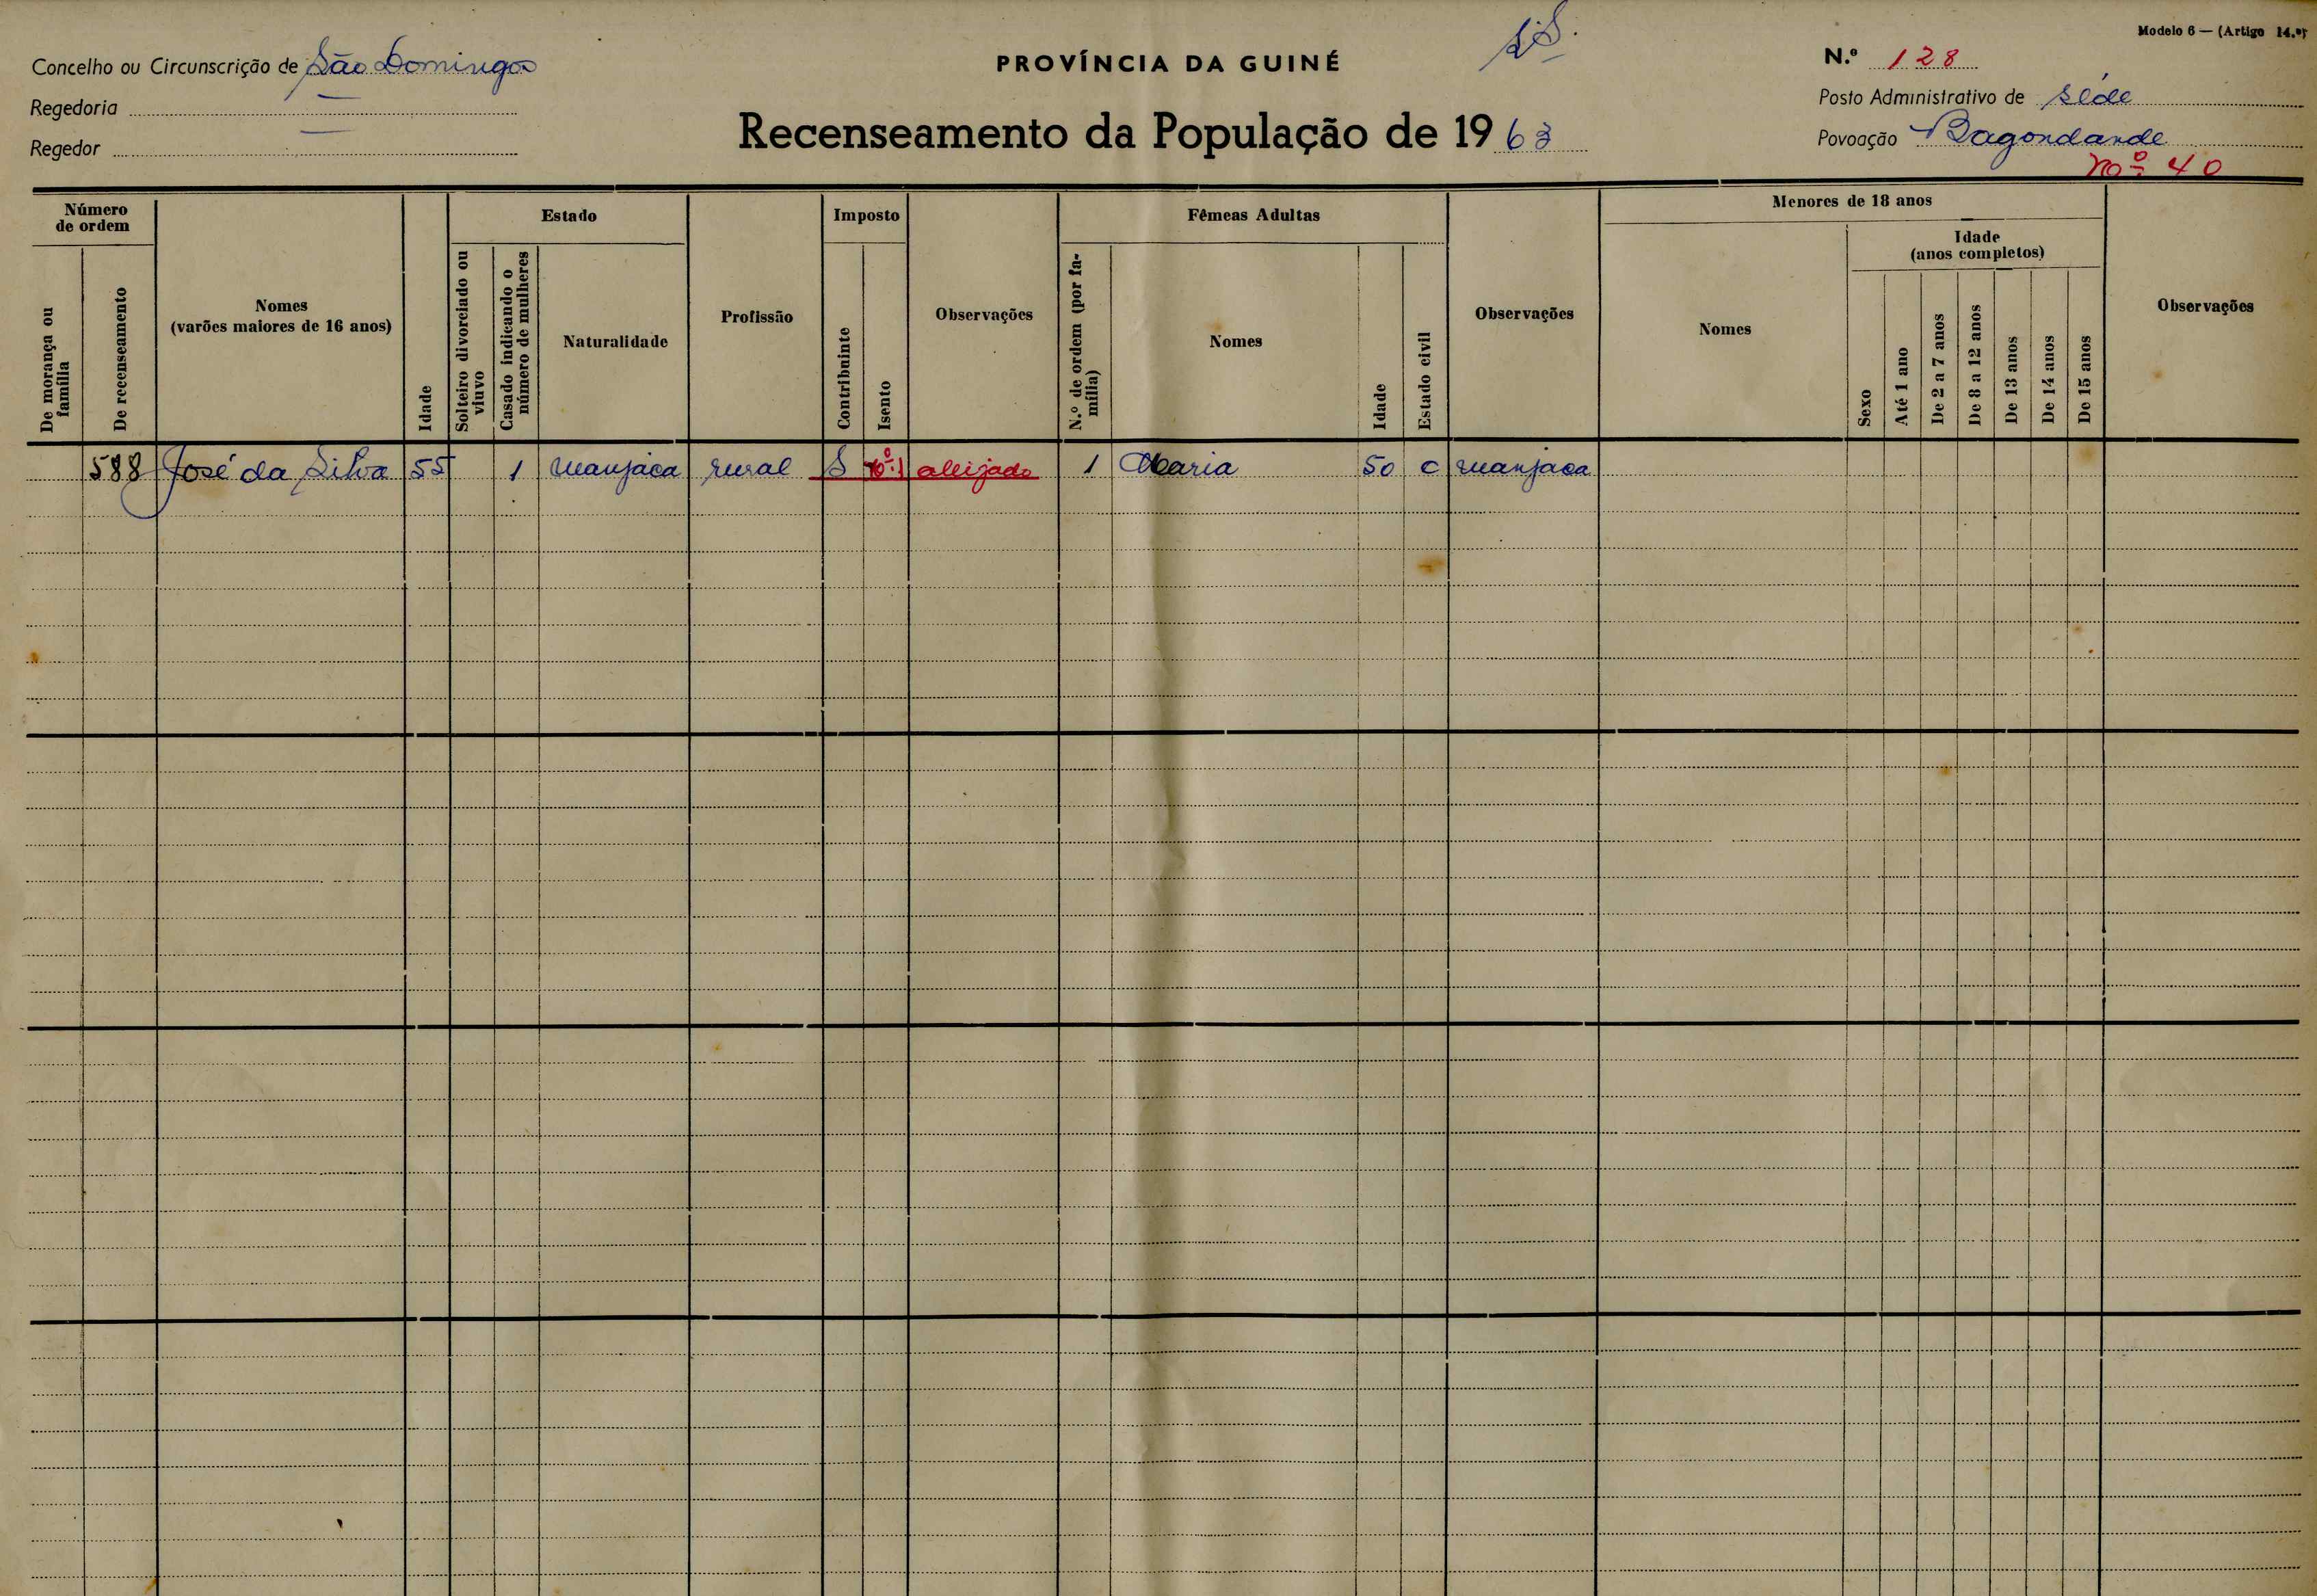 Modelo 6 — (Artigo 14.º)
Concelho ou Circunscrição de São Domingos
PROVÍNCIA DA GUINÉ
N.º 128
Regedoria —
Posto Administrativo de séde
Regedor —
Recenseamento da População de 1963
Povoação Bagondande
Nº 40
Número de ordem
De morança ou família
De recenseamento
Nomes
(varões maiores de 16 anos)
Idade
Estado
Solteiro divorciado ou viuvo
Casado indicando o número de mulheres
Naturalidade
Profissão
Imposto
Contribuinte
Isento
Observações
Fêmeas Adultas
N.º de ordem (por família)
Nomes
Idade
Estado civil
Observações
Menores de 18 anos
Nomes
Idade
(anos completos)
Sexo
Até 1 ano
De 2 a 7 anos
De 8 a 12 anos
De 13 anos
De 14 anos
De 15 anos
Observações
588 José da Silva 55 1 manjaca rural S nº1 aleijado 1 Maria 50 C manjaca